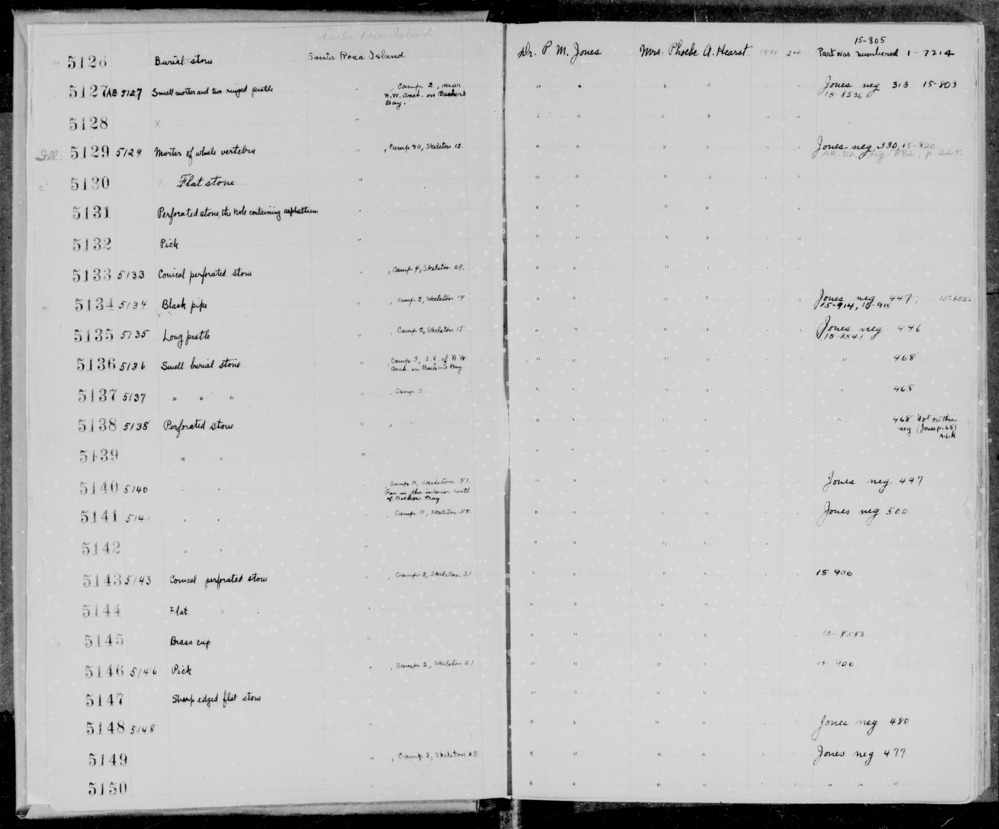 Santa Rosa Island
15-805
5126 Burial stone Santa Rosa Island. Dr. P. M. Jones Mrs. Phoebe A. Hearst 1901 Part was numbered 1-7214
5127 AB 5127 Small mortar and two ringed pestle " , Camp 2, near N.W. Anch. on Becher's Bay. " " " " " Jones neg 313 15-803
5128 x " " " " "
Ill. 5129 5129 Mortar of whale vertebra " , Camp 30, Skeleton 12. " " " " " Jones neg 330, 15-820
AR. 52, fig 882, p. 225.
5130 Flat stone " " " " "
5131 Perforated stone, the hole containing asphaltum " " " " "
5132 Pick " " " " "
5133 5133 Conical perforated stone " , Camp 4, Skeleton 29. " " " "
5134 5134 Black pipe " , Camp 2, Skeleton 19 " " " " Jones neg 447;
15-914, 15-915
5135 5135 Long pestle " , Camp 2, Skeleton 15 " " " " Jones neg 446
5136 5136 Small burial stone " Camp 3, S.E. of N.W. Anch on Becher's Bay " " " " " 468
5137 5137 " " " " , Camp 3. " " " " " 468
5138 5138 Perforated stone " , " " " " " " 468 Not on this neg (Jones p. 65) ALK
5139 " " " " " " "
5140 5140 " " " , Camp 11, Skeleton 51. Far in the interior south of Becher's Bay " " " " Jones neg. 497
5141 5141 " " " , Camp 11, Skeleton 50 " " " " Jones neg 500
5142 " " " " " " "
5143 5143 Conical perforated stone " , Camp 2, Skeleton 21 " " " " 15-906
5144 Flat " " " " " " "
5145 Brass cup " " " " " 15-8583
5146 5146 Pick " , Camp 2, Skeleton 21 " " " " 15-906
5147 Sharp edged flat stone " " " " "
5148 5148 " " " " " Jones neg 480
5149 " , Camp 2, Skeleton " " " " Jones neg 477
5150 " " " "